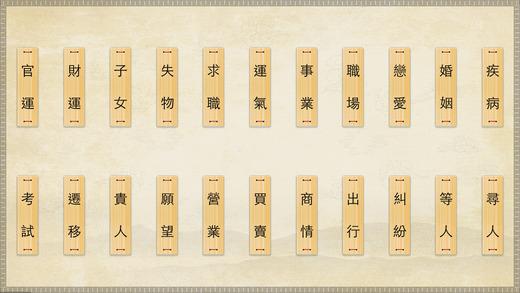 官運
財運
子女
失物
求職
運氣
事業
職場
戀愛
婚姻
疾病
考試
遷移
貴人
願望
營業
買賣
商情
出行
糾紛
等人
尋人